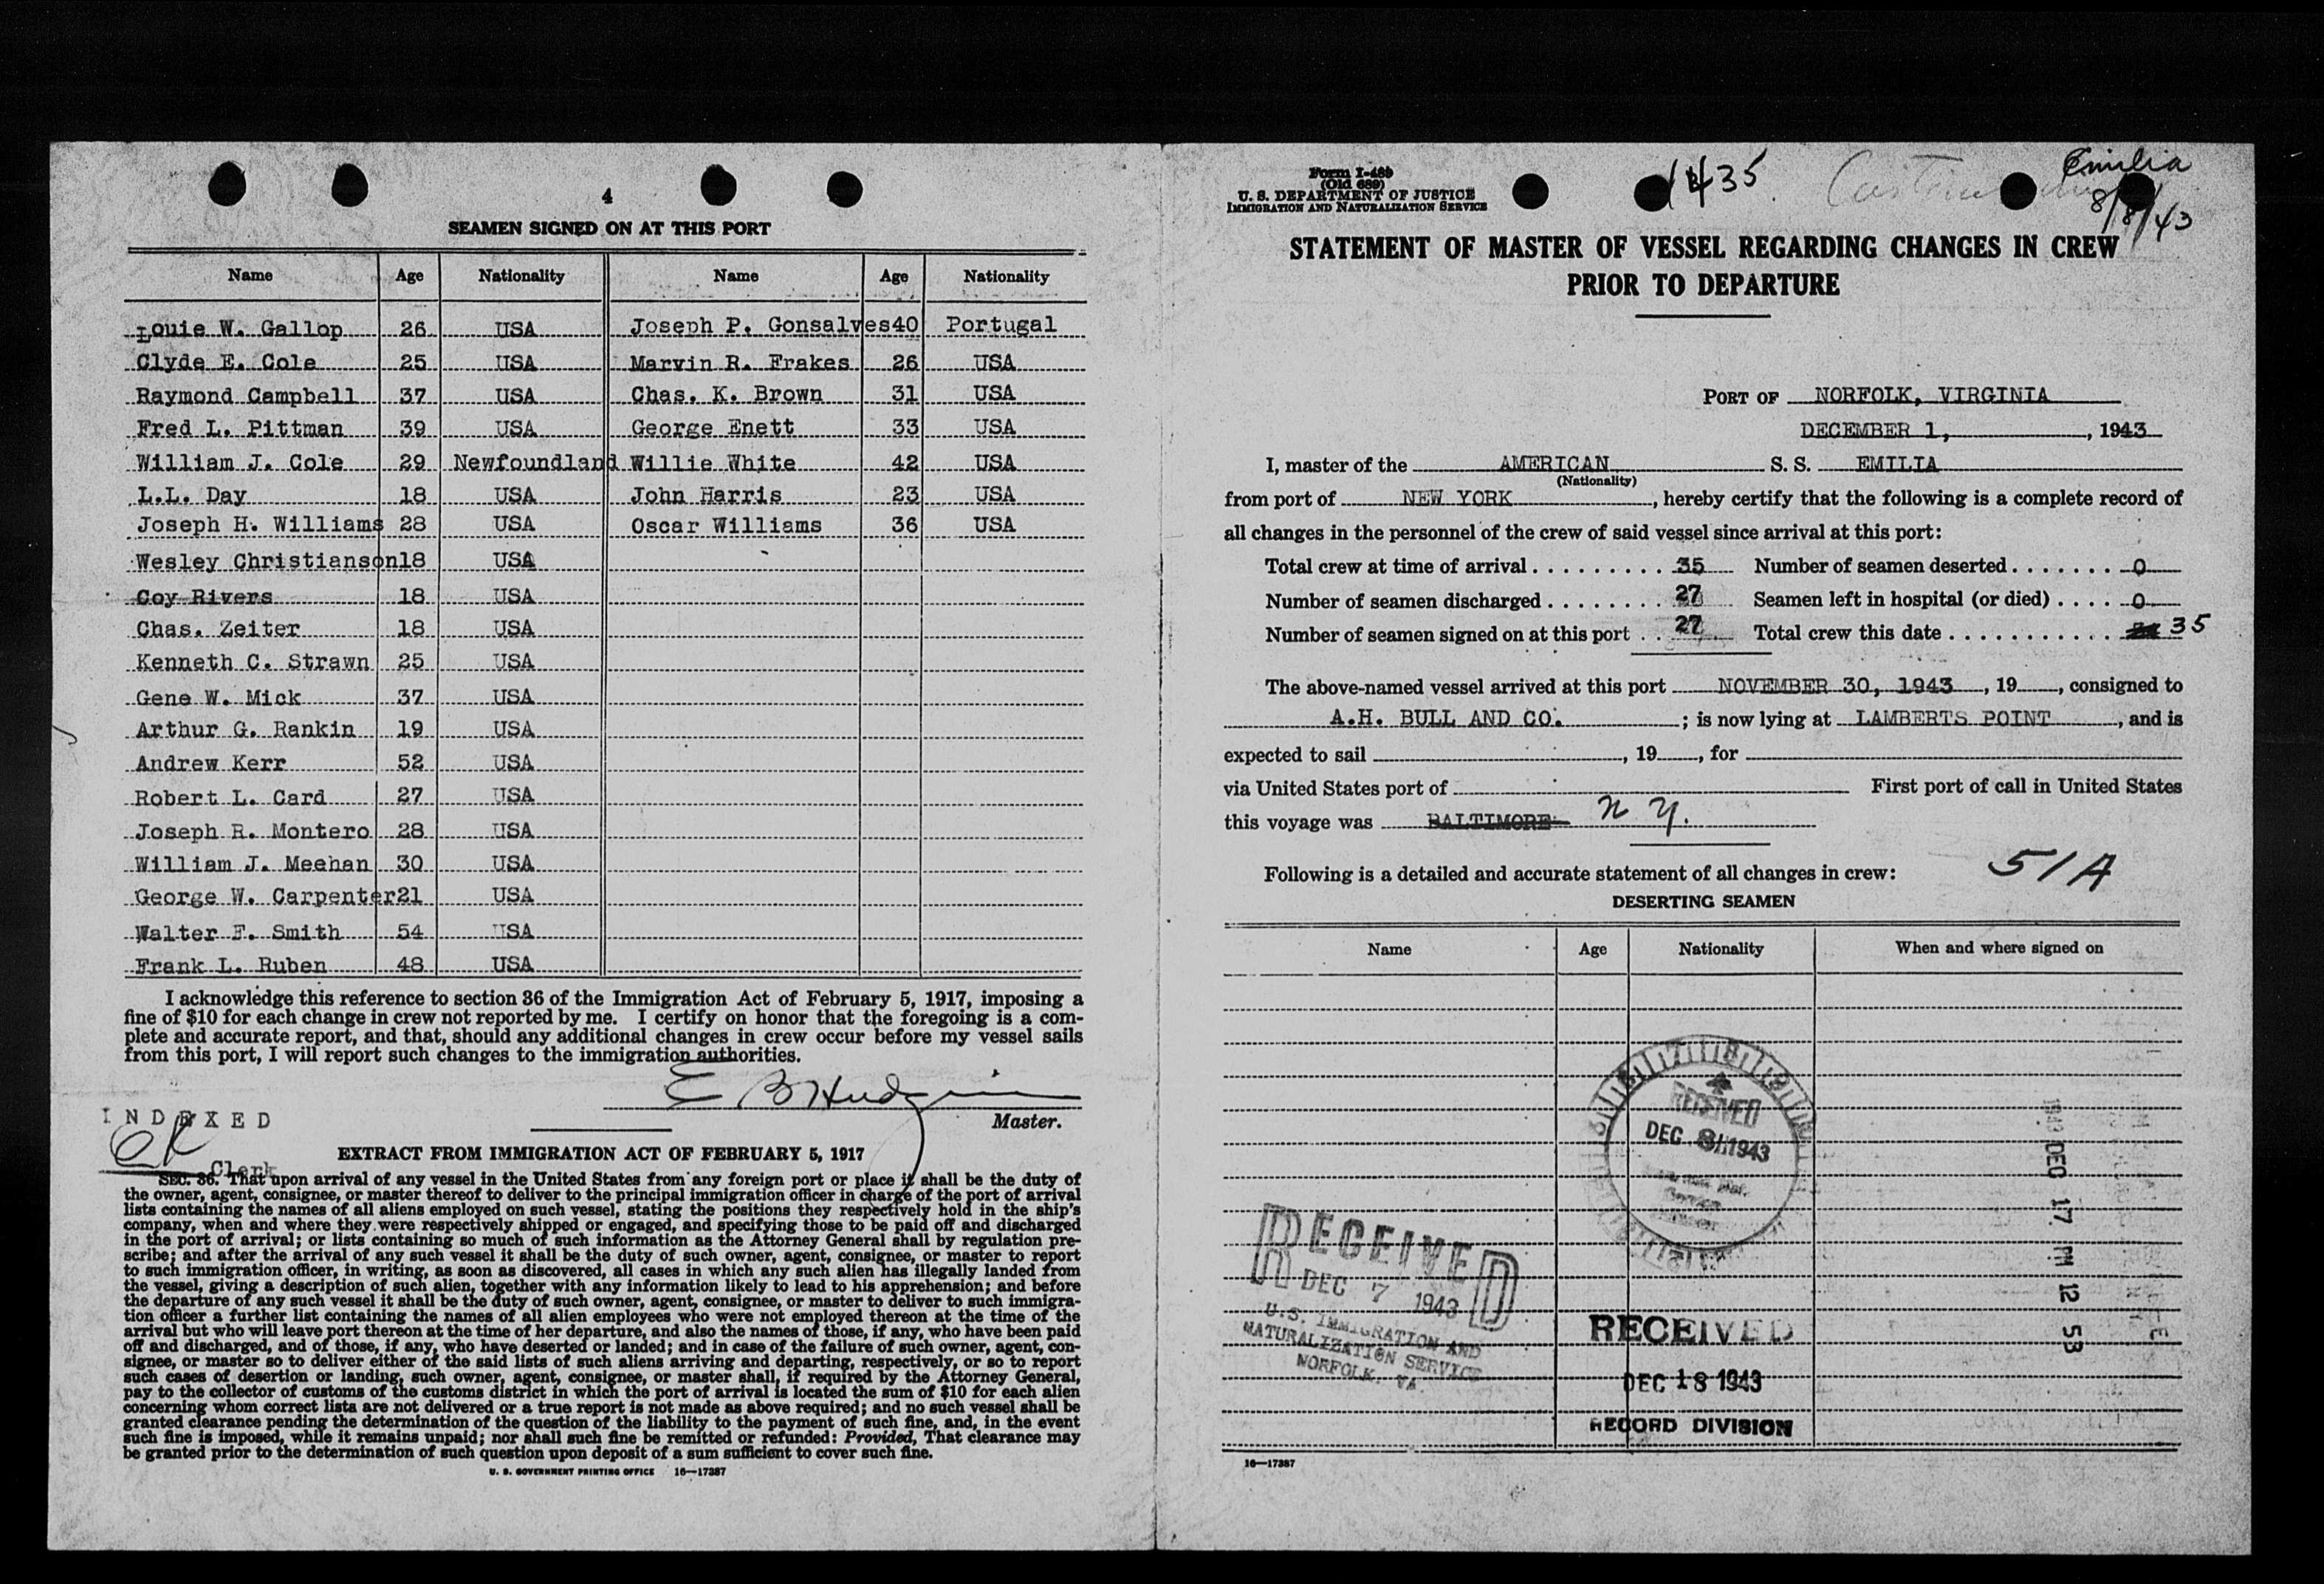 4
SEAMEN SIGNED ON AT THIS PORT
Name Age Nationality Name Age Nationality
Louie W. Gallop 26 USA Joseph P. Gonsalves 40 Portugal
Clyde E. Cole 25 USA Marvin R. Frakes 26 USA
Raymond Campbell 37 USA Chas. K. Brown 31 USA
Fred L. Pittman 39 USA George Enett 33 USA
William J. Cole 29 Newfoundland Willie White 42 USA
L.L. Day 18 USA John Harris 23 USA
Joseph H. Williams 28 USA Oscar Williams 36 USA
Wesley Christianson 18 USA
Coy Rivers 18 USA
Chas. Zeiter 18 USA
Kenneth C. Strawn 25 USA
Gene W. Mick 37 USA
Arthur G. Rankin 19 USA
Andrew Kerr 52 USA
Robert L. Card 27 USA
Joseph R. Montero 28 USA
William J. Meehan 30 USA
George W. Carpenter 21 USA
Walter F. Smith 54 USA
Frank L. Ruben 48 USA
I acknowledge this reference to section 36 of the Immigration Act of February 5, 1917, imposing a
fine of $10 for each change in crew not reported by me. I certify on honor that the foregoing is a com-
plete and accurate report, and that, should any additional changes in crew occur before my vessel sails
from this port, I will report such changes to the immigration authorities.
E B Hudgins
Master.
INDEXED
Clerk
EXTRACT FROM IMMIGRATION ACT OF FEBRUARY 5, 1917
SEC. 36. That upon arrival of any vessel in the United States from any foreign port or place it shall be the duty of
the owner, agent, consignee, or master thereof to deliver to the principal immigration officer in charge of the port of arrival
lists containing the names of all aliens employed on such vessel, stating the positions they respectively hold in the ship's
company, when and where they were respectively shipped or engaged, and specifying those to be paid off and discharged
in the port of arrival; or lists containing so much of such information as the Attorney General shall by regulation pre-
scribe; and after the arrival of any such vessel it shall be the duty of such owner, agent, consignee, or master to report
to such immigration officer, in writing, as soon as discovered, all cases in which any such alien has illegally landed from
the vessel, giving a description of such alien, together with any information likely to lead to his apprehension; and before
the departure of any such vessel it shall be the duty of such owner, agent, consignee, or master to deliver to such immigra-
tion officer a further list containing the names of all alien employees who were not employed thereon at the time of the
arrival but who will leave port thereon at the time of her departure, and also the names of those, if any, who have been paid
off and discharged, and of those, if any, who have deserted or landed; and in case of the failure of such owner, agent, con-
signee, or master so to deliver either of the said lists of such aliens arriving and departing, respectively, or so to report
such cases of desertion or landing, such owner, agent, consignee, or master shall, if required by the Attorney General,
pay to the collector of customs of the customs district in which the port of arrival is located the sum of $10 for each alien
concerning whom correct lists are not delivered or a true report is not made as above required; and no such vessel shall be
granted clearance pending the determination of the question of the liability to the payment of such fine, and, in the event
such fine is imposed, while it remains unpaid; nor shall such fine be remitted or refunded: Provided, That clearance may
be granted prior to the determination of such question upon deposit of a sum sufficient to cover such fine.
U. S. GOVERNMENT PRINTING OFFICE 16—17387
Form I-489
(Old 689)
U. S. DEPARTMENT OF JUSTICE
IMMIGRATION AND NATURALIZATION SERVICE
Emilia
8/8/43
STATEMENT OF MASTER OF VESSEL REGARDING CHANGES IN CREW
PRIOR TO DEPARTURE
PORT OF NORFOLK, VIRGINIA
DECEMBER 1, , 1943
I, master of the AMERICAN S. S. EMILIA
(Nationality)
from port of NEW YORK, hereby certify that the following is a complete record of
all changes in the personnel of the crew of said vessel since arrival at this port:
Total crew at time of arrival 35 Number of seamen deserted 0
Number of seamen discharged 27 Seamen left in hospital (or died) 0
Number of seamen signed on at this port 27 Total crew this date 35
The above-named vessel arrived at this port NOVEMBER 30, 1943, 19 , consigned to
A.H. BULL AND CO. ; is now lying at LAMBERTS POINT, and is
expected to sail , 19 , for
via United States port of First port of call in United States
this voyage was BALTIMORE N Y.
Following is a detailed and accurate statement of all changes in crew:
51A
DESERTING SEAMEN
Name Age Nationality When and where signed on
RECEIVED
DEC 1943
1943 DEC 17 12 53
RECEIVED
DEC 7 1943
U.S. IMMIGRATION AND
NATURALIZATION SERVICE
NORFOLK, VA.
RECEIVED
DEC 18 1943
RECORD DIVISION
16—17387